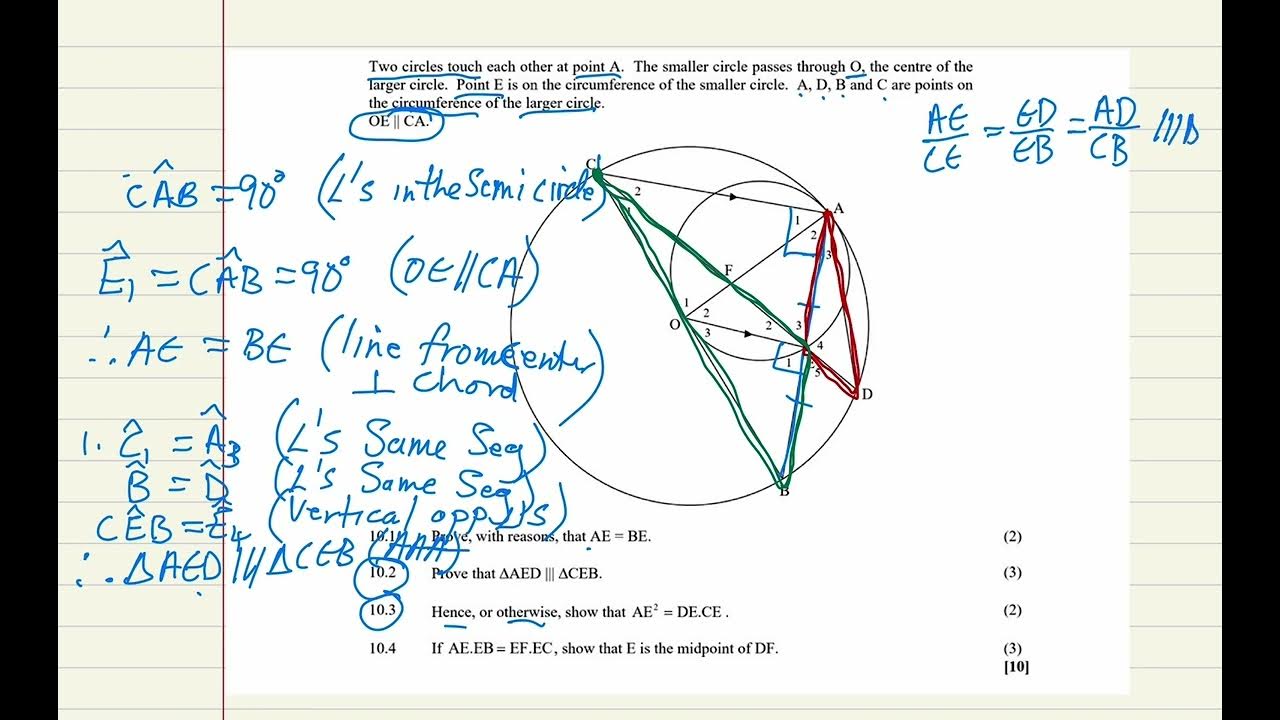 Two circles touch each other at point A. The smaller circle passes through O, the centre of the
larger circle. Point E is on the circumference of the smaller circle. A, D, B and C are points on
the circumference of the larger circle.
OE || CA.
AE/CE = ED/EB = AD/CB |||Δ
CÂB = 90° (∠'s in the Semi circle)
Ê₁ = CÂB = 90° (OE//CA)
∴ AE = BE (line from center
⊥ chord)
1. Ĉ₁ = Â₃ (∠'s Same Seg)
B̂ = D̂ (∠'s Same Seg)
CÊB = Ê₄ (Vertical opp ∠'s)
∴ ΔAED ||| ΔCEB (AAA)
C
2
1
A
1
2
3
F
1
O
2
3
2
3
4
1
5
D
B
10.1 Prove, with reasons, that AE = BE. (2)
10.2 Prove that ΔAED ||| ΔCEB. (3)
10.3 Hence, or otherwise, show that AE² = DE.CE . (2)
10.4 If AE.EB = EF.EC, show that E is the midpoint of DF. (3)
[10]